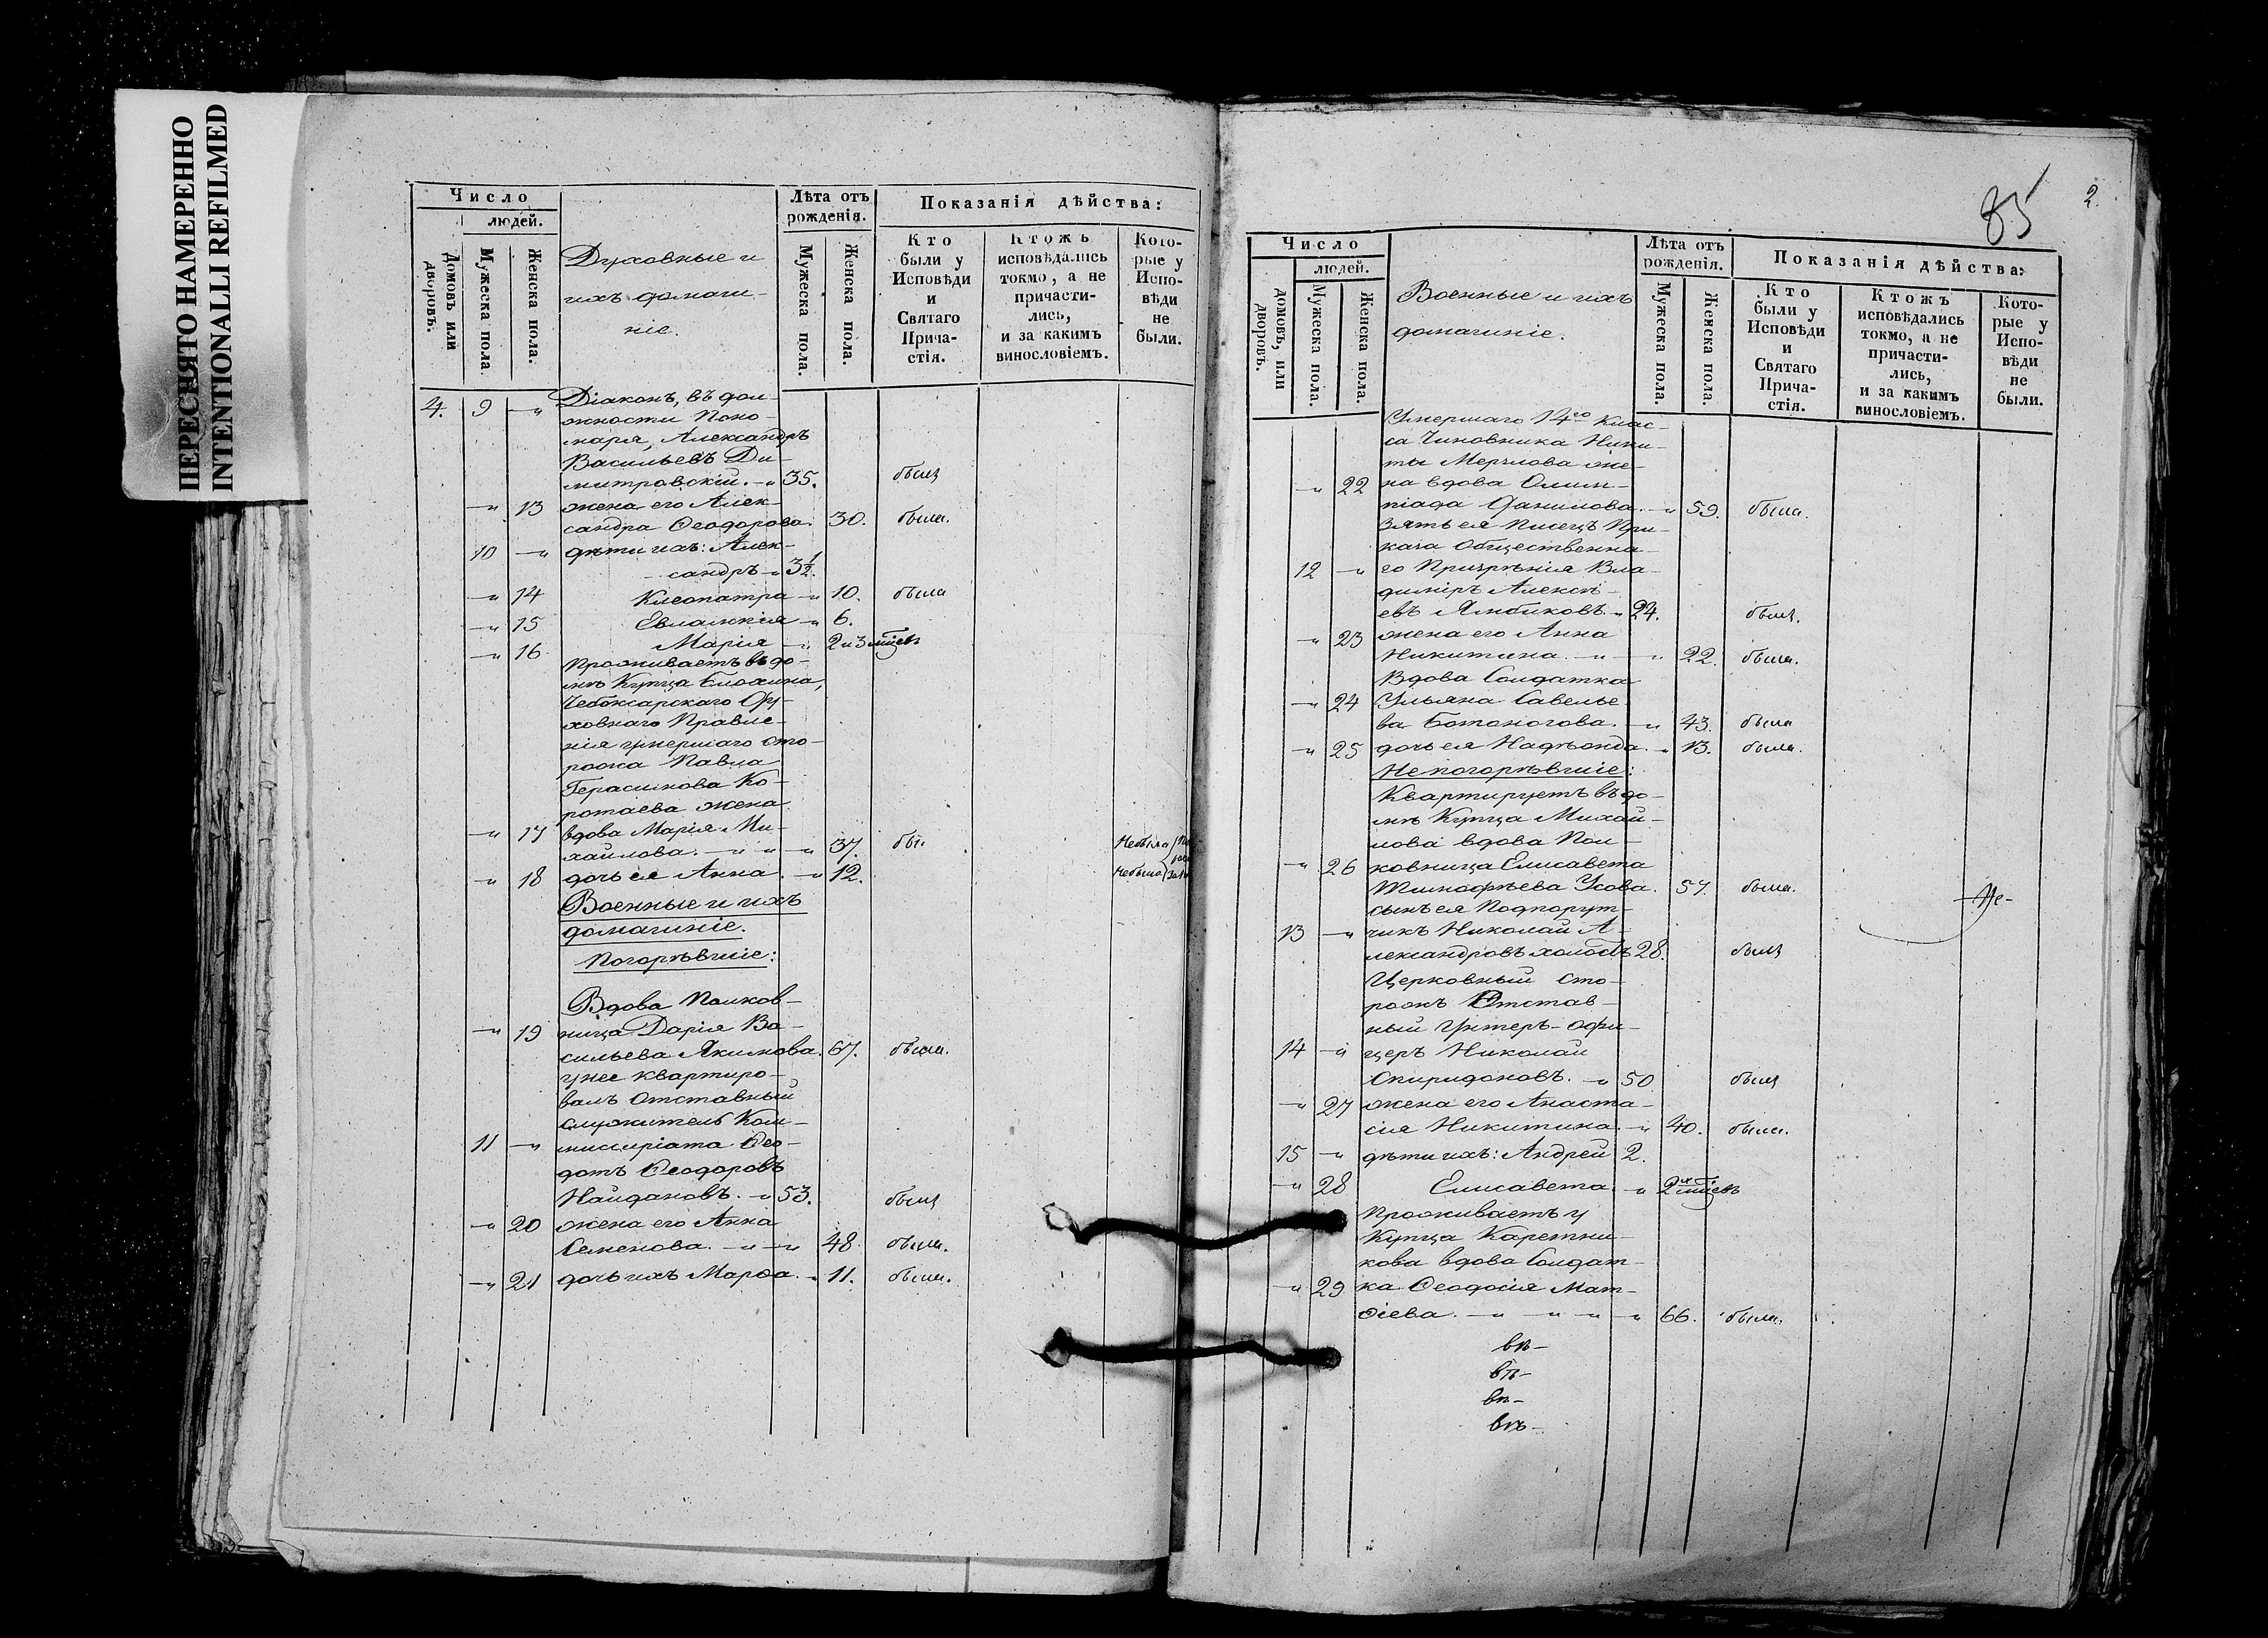 ПЕРЕСНЯТО НАМЕРЕННО
INTENTIONALLI REFILMED
Число
людей.
Домовъ или дворовъ.
Мужеска пола
Женска пола.
Духовные и
ихъ домаш-
ніе.
Лѣта отъ рожденія.
Мужеска пола.
Женска пола.
Показанія дѣйства:
Кто были у Исповѣди и Святаго Прича-стія.
Ктожъ исповѣдались токмо, а не причасти-лись, и за какимъ винословіемъ.
Кото-рые у Испо-вѣди не были.
4. 9 —„ Діаконъ, въ дол-
жности Поно-
маря, Александръ
Васильевъ Ди-
митровскій. —„ 35. былъ
—„ 13 жена его Алек-
сандра Ѳеодорова. 30. была.
10 —„ дѣти ихъ: Алек-
сандръ —„ 3½.
—„ 14 Клеопатра —„ 10. была
—„ 15 Евлампія —„ 6.
—„ 16 Марія —„ 2 и 3 мѣсв
Проживаетъ въ до-
мѣ Купца
Чебоксарскаго Ду-
ховнаго Правле-
нія умершаго сто-
рожа Павла
Герасимова Ко-
ротаева жена
—„ 17 вдова Марія Ми-
хайлова. —„ —„ —„ 37. бы Небыла
—„ 18 дочь ея Анна —„ 12. Небыла
Военные и ихъ
домашніе.
Погорѣвшіе:
Вдова Полков-
—„ 19 ница Дарія Ва-
сильева Якимова. 67. была.
у нее квартиро-
валъ Отставный
служитель Ком-
11 —„ миссаріата Ѳео-
дотъ Ѳеодоровъ
Найдановъ. —„ 53. былъ
—„ 20 жена его Анна
Семенова. —„ —„ 48. была.
—„ 21 дочь ихъ Марѳа. —„ 11. была.
85
2.
Число
людей.
домовъ, или дворовъ.
Мужеска пола.
Женска пола.
Военные и ихъ
домашніе.
Лѣта отъ рожденія.
Мужеска пола.
Женска пола.
Показанія дѣйства:
Кто были у Исповѣди и Святаго Прича-стія.
Ктожъ исповѣдались токмо, а не причасти-лись, и за какимъ винословіемъ.
Кото-рые у Испо-вѣди не были.
Умершаго 14го Клас-
са Чиновника Ники-
ты Мерчлова же-
—„ 22 на вдова Олим-
піада Данилова. —„ 59. была.
Зять ея Писецъ При-
каза Общественна-
12 —„ го Призрѣнія Вла-
диміръ Алексѣ-
евъ —„ 24. былъ.
—„ 23 жена его Анна
Никитина. —„ —„ 22. была.
Вдова Солдатка
—„ 24 Ульяна Савелье-
ва Ботоногова. —„ 43. была
—„ 25 дочь ея Надѣжда. —„ 13. была.
Непогорѣвшіе:
Квартируетъ въ до-
мѣ Купца Михай-
лова вдова Пол-
—„ 26 ковница Елисавета
Тимофѣева Усова. 57. была.
сынъ ея Подпорут-
13 —„ чикъ Николай А-
лександровъ холостъ 28. былъ
Церковный сто-
рожъ Отстав-
ный Унтеръ-офи-
14 —„ церъ Николай
Спиридоновъ. —„ 50 былъ
—„ 27 жена его Анаста-
сія Никитина. —„ 40. была.
15 —„ дѣти ихъ: Андрей 2.
—„ 28 Елисавета. —„ 2х мѣсвъ
Проживаетъ у
Купца Каретни-
кова вдова Солдат-
—„ 29 ка Ѳеодосія Мат-
ѳіева. —„ —„ —„ —„ 66. была.
-Не-